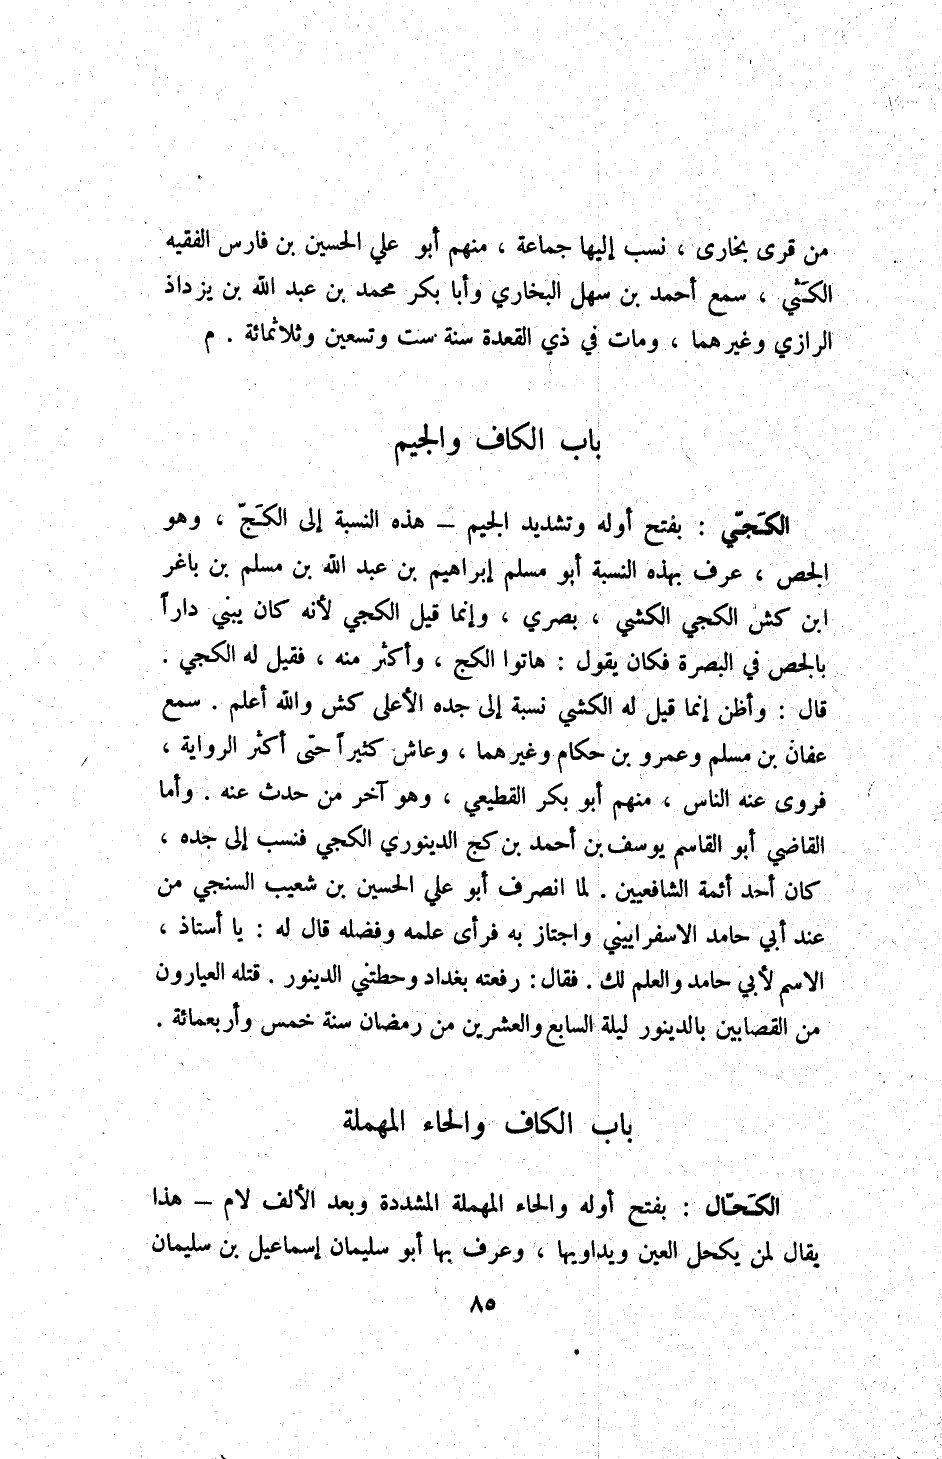 من قرى بخارى ، نسب إليها جماعة ، منهم أبو علي الحسين بن فارس الفقيه
الكَثّي ، سمع أحمد بن سهل البخاري وأبا بكر محمد بن عبد الله بن يزداذ
الرازي وغيرهما ، ومات في ذي القعدة سنة ست وتسعين وثلاثمائة . م
باب الكاف والجيم
الكَجّي : بفتح أوله وتشديد الجيم – هذه النسبة إلى الكَجّ ، وهو
الجص ، عرف بهذه النسبة أبو مسلم إبراهيم بن عبد الله بن مسلم بن باغر
ابن كش الكجي الكشي ، بصري ، وإنما قيل الكجي لأنه كان يبني داراً
بالجص في البصرة فكان يقول : هاتوا الكج ، وأكثر منه ، فقيل له الكجي .
قال : وأظن إنما قيل له الكشي نسبة إلى جده الأعلى كش والله أعلم . سمع
عفان بن مسلم وعمرو بن حكام وغيرهما ، وعاش كثيراً حتى أكثر الرواية ،
فروى عنه الناس ، منهم أبو بكر القطيعي ، وهو آخر من حدث عنه . وأما
القاضي أبو القاسم يوسف بن أحمد بن كج الدينوري الكجي فنسب إلى جده ،
كان أحد أئمة الشافعيين . لما انصرف أبو علي الحسين بن شعيب السنجي من
عند أبي حامد الاسفراييني واجتاز به فرأى علمه وفضله قال له : يا أستاذ ،
الاسم لأبي حامد والعلم لك . فقال : رفعته بغداد وحطتني الدينور . قتله العيارون
من القصابين بالدينور ليلة السابع والعشرين من رمضان سنة خمس وأربعمائة .
باب الكاف والحاء المهملة
الكَحّال : بفتح أوله والحاء المهملة المشددة وبعد الألف لام – هذا
يقال لمن يكحل العين ويداويها ، وعرف بها أبو سليمان إسماعيل بن سليمان
٨٥